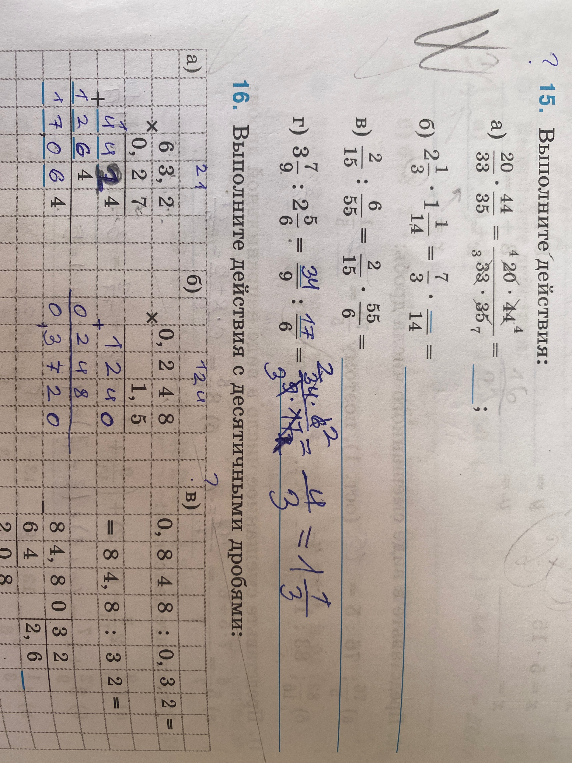 ? 15. Выполните действия:
а) 20/33 · 44/35 = (⁴20 · 44⁴)/(₃33 · 35₇) = __;
б) 2 1/3 · 1 1/14 = 7/3 · __/14 =
в) 2/15 : 6/55 = 2/15 · 55/6 =
г) 3 7/9 : 2 5/6 = 34/9 : 17/6 = (²34 · 6²)/(₃9 · 17) = 4/3 = 1 1/3
16. Выполните действия с десятичными дробями:
а) б) в)
× 63,2
0,27
+ 4424
1264
17064
× 0,248
1,5
+ 1240
0248
0,3720
0,848 : 0,32 =
= 84,8 : 32 =
84,80 32
64 2,6_
208